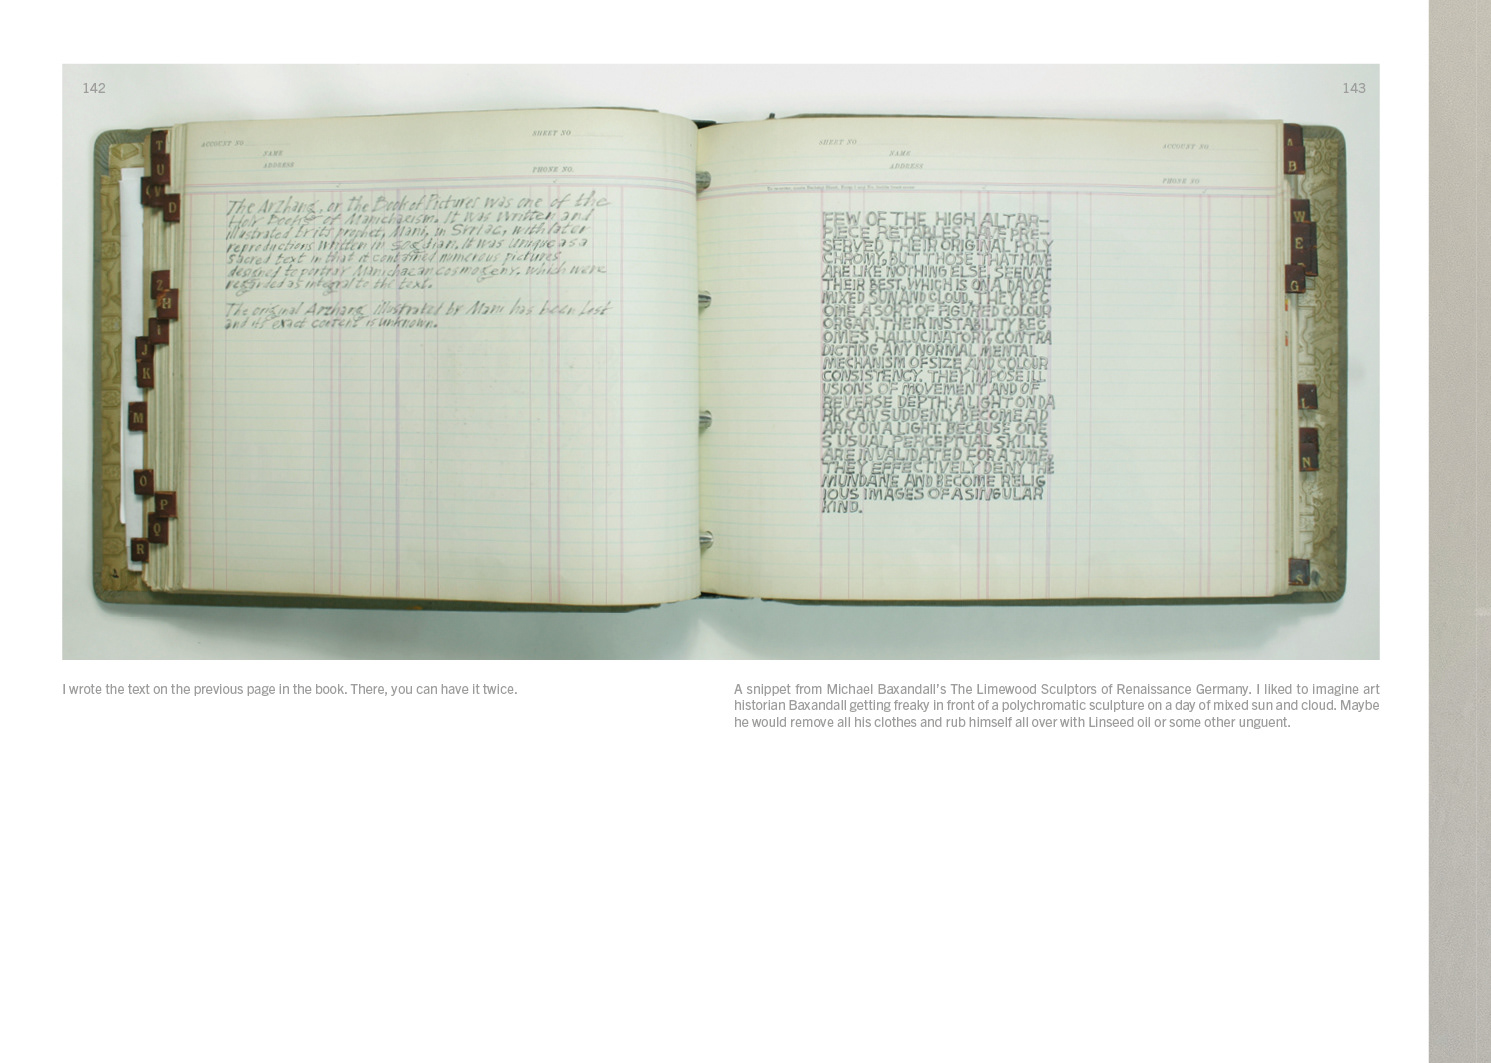 142
143
ACCOUNT NO
SHEET NO
NAME
ADDRESS
PHONE NO.
The Arzhang, or the Book of Pictures was one of the
Holy Books of Manichaeism. It was written and
illustrated by its prophet, Mani, in Syriac, with later
reproductions written in Sogdian. It was unique as a
sacred text in that it contained numerous pictures,
designed to portray Manichaean cosmogeny, which were
regarded as integral to the text.
The original Arzhang illustrated by Mani has been lost
and its exact content is unknown.
SHEET NO
ACCOUNT NO
NAME
ADDRESS
PHONE NO
FEW OF THE HIGH ALTAR-
PIECE RETABLES HAVE PRE-
SERVED THEIR ORIGINAL POLY
CHROMY, BUT THOSE THAT HAVE
ARE LIKE NOTHING ELSE. SEEN AT
THEIR BEST, WHICH IS ON A DAY OF
MIXED SUN AND CLOUD, THEY BEC
OME A SORT OF FIGURED COLOUR
ORGAN. THEIR INSTABILITY BEC
OMES HALLUCINATORY, CONTRA
DICTING ANY NORMAL MENTAL
MECHANISM OF SIZE AND COLOUR
CONSISTENCY. THEY IMPOSE ILL
USIONS OF MOVEMENT AND OF
REVERSE DEPTH: A LIGHT ON DA
RK CAN SUDDENLY BECOME A D
ARK ON A LIGHT. BECAUSE ONE
S USUAL PERCEPTUAL SKILLS
ARE INVALIDATED FOR A TIME,
THEY EFFECTIVELY DENY THE
MUNDANE AND BECOME RELIG
IOUS IMAGES OF A SINGULAR
KIND.
T
U
V
D
Z
H
I
J
K
M
O
P
Q
R
A
B
W
E
G
L
N
S
I wrote the text on the previous page in the book. There, you can have it twice.
A snippet from Michael Baxandall's The Limewood Sculptors of Renaissance Germany. I liked to imagine art
historian Baxandall getting freaky in front of a polychromatic sculpture on a day of mixed sun and cloud. Maybe
he would remove all his clothes and rub himself all over with Linseed oil or some other unguent.